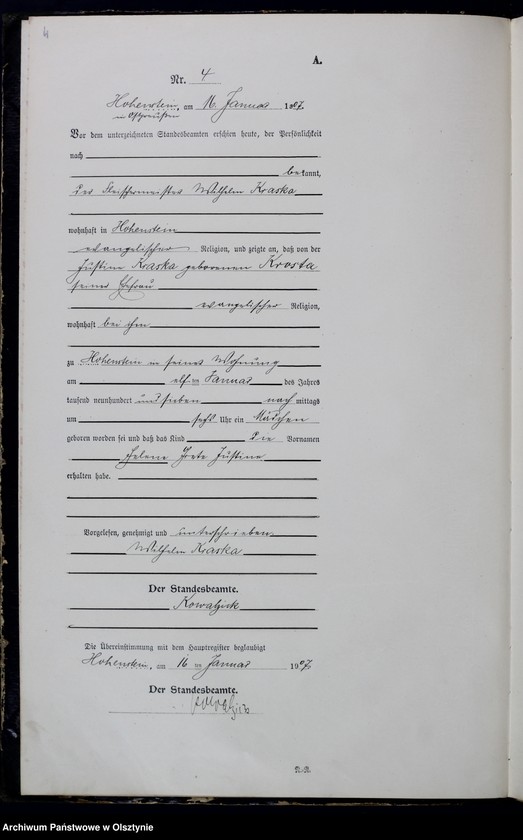 4
A.
Nr. 4
Hohenstein, am 16. Januar 1907.
in Ostpreußen
Vor dem unterzeichneten Standesbeamten erschien heute, der Persönlichkeit
nach
bekannt,
der Fleischermeister Wilhelm Kraska
wohnhaft in Hohenstein
evangelischer Religion, und zeigte an, daß von der
Justine Kraska geborenen Krosta
seiner Ehefrau
evangelischer Religion,
wohnhaft bei ihm
zu Hohenstein in seiner Wohnung
am elften Januar des Jahres
tausend neunhundert und sieben nachmittags
um sechs Uhr ein Mädchen
geboren worden sei und daß das Kind die Vornamen
Helene Grete Justine
erhalten habe.
Vorgelesen, genehmigt und unterschrieben.
Wilhelm Kraska
Der Standesbeamte.
Kowalzick
Die Übereinstimmung mit dem Hauptregister beglaubigt
Hohenstein, am 16 ten Januar 1907.
Der Standesbeamte.
Kowalzick
Archiwum Państwowe w Olsztynie